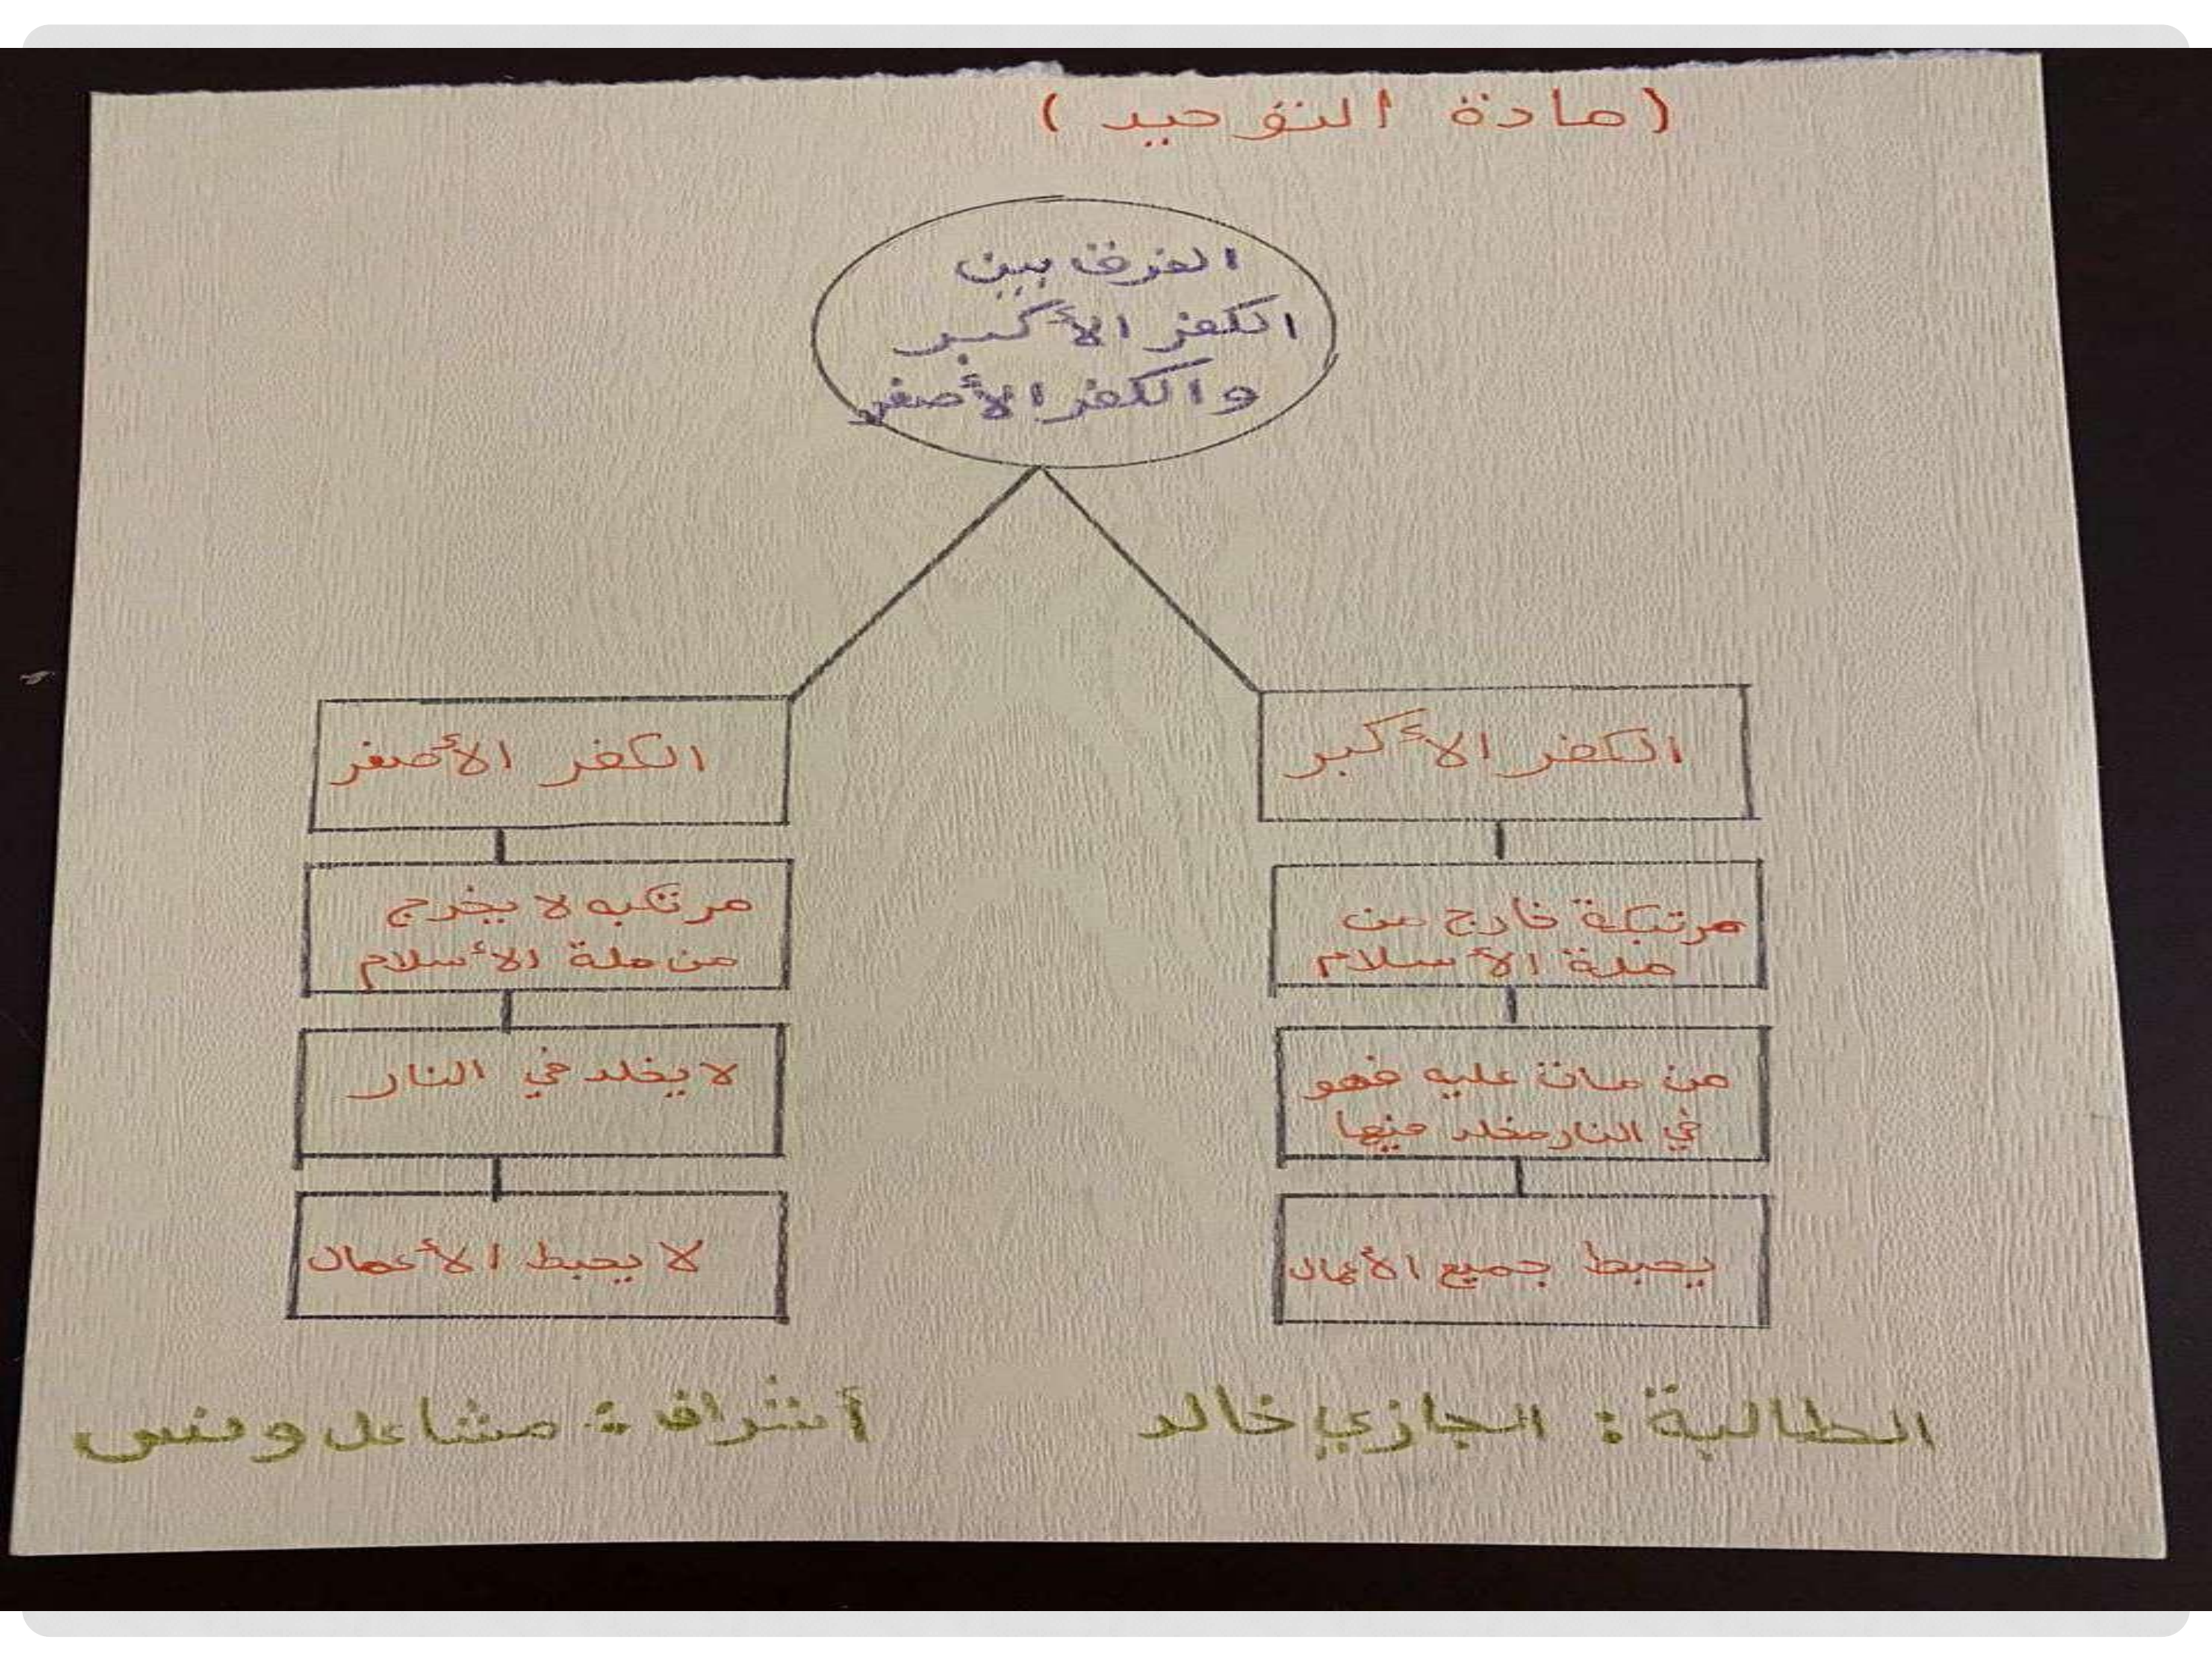 (مادة التوحيد)
الفرق بين
الكفر الأكبر
والكفر الأصغر
الكفر الأكبر
مرتبكة خارج من
ملة الأسلام
من مات عليه فهو
في النار مخلد فيها
يحبط جميع الأعمال
الكفر الأصغر
مرتكبه لا يخرج
من ملة الأسلام
لا يخلد في النار
لا يحبط الأعمال
الطالبة: الجازي خالد
أشراف: مشاعل ونس